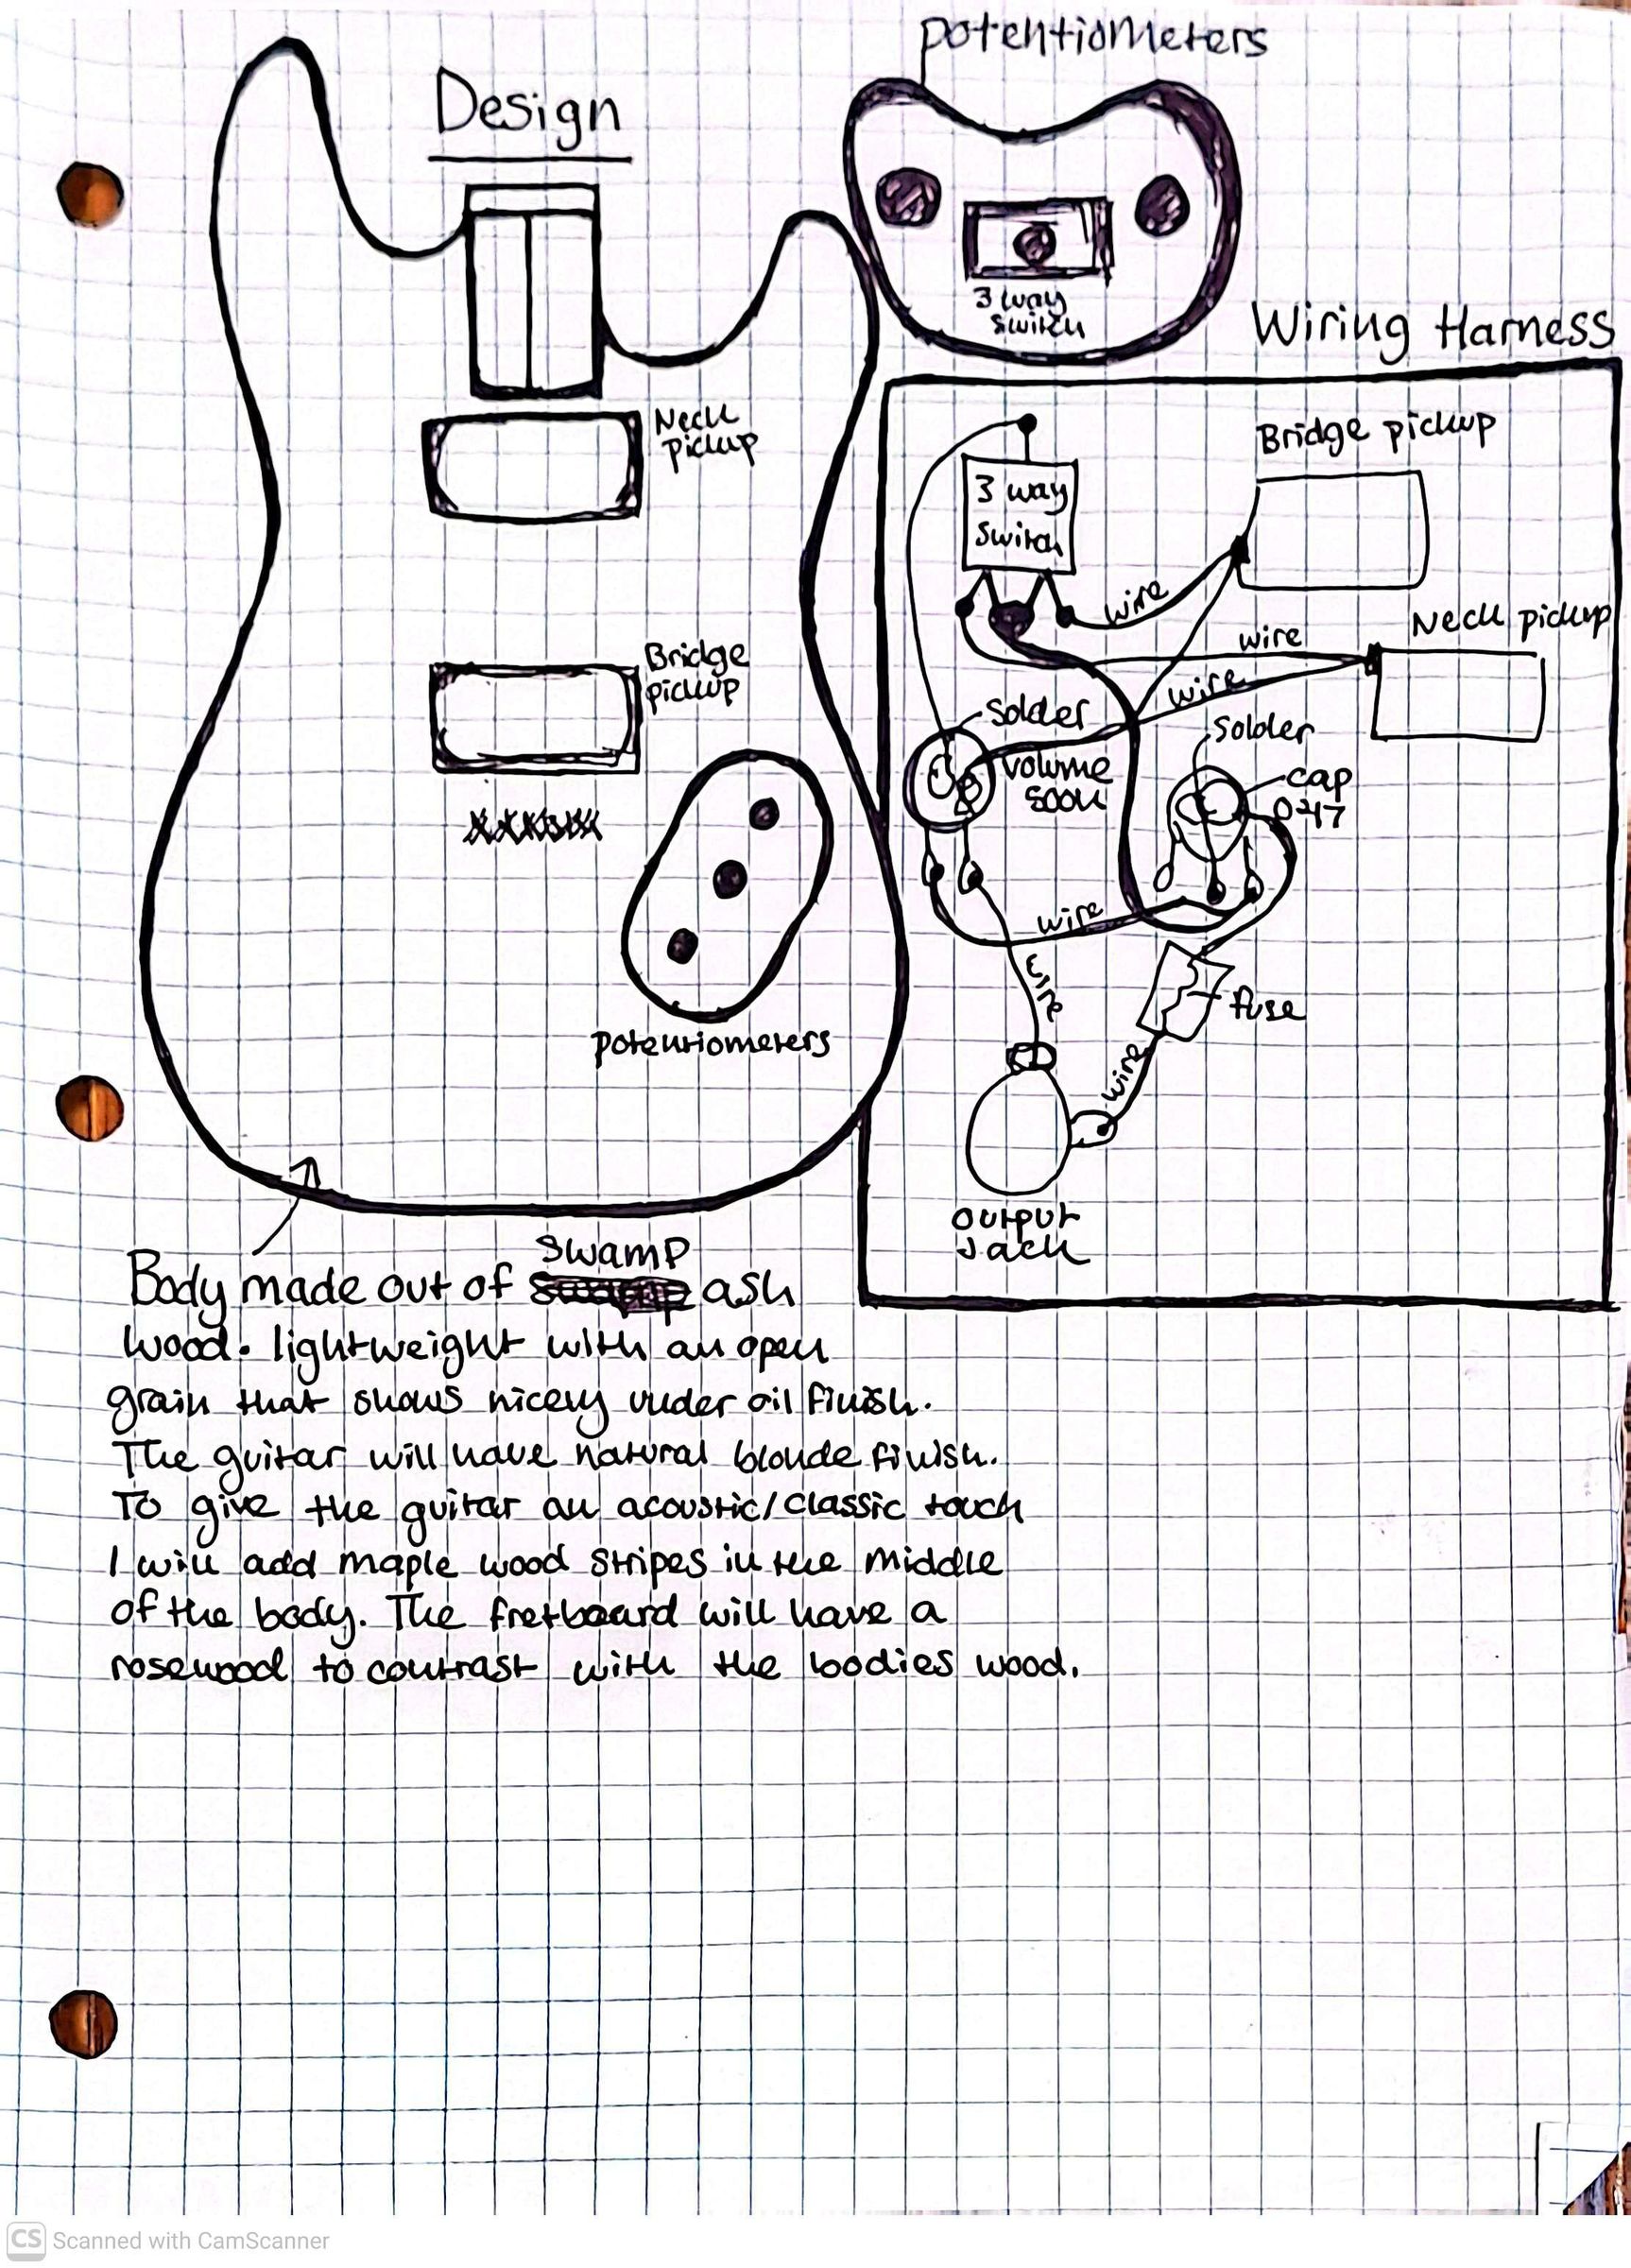 potentiometers
Design
3 way
switch
Wiring Harness
Neck
pickup
Bridge pickup
3 way
switch
wire
wire
Neck pickup
wire
Bridge
pickup
Solder
Solder
volume
500k
cap
047
wire
wire
fuse
wire
potentiometers
output
Jack
swamp
Body made out of ash
wood. lightweight with an open
grain that shows nicely under oil finish.
The guitar will have natural blonde finish.
To give the guitar an acoustic/classic touch
I will add maple wood stripes in the middle
of the body. The fretboard will have a
rosewood to contrast with the bodies wood.
CS Scanned with CamScanner